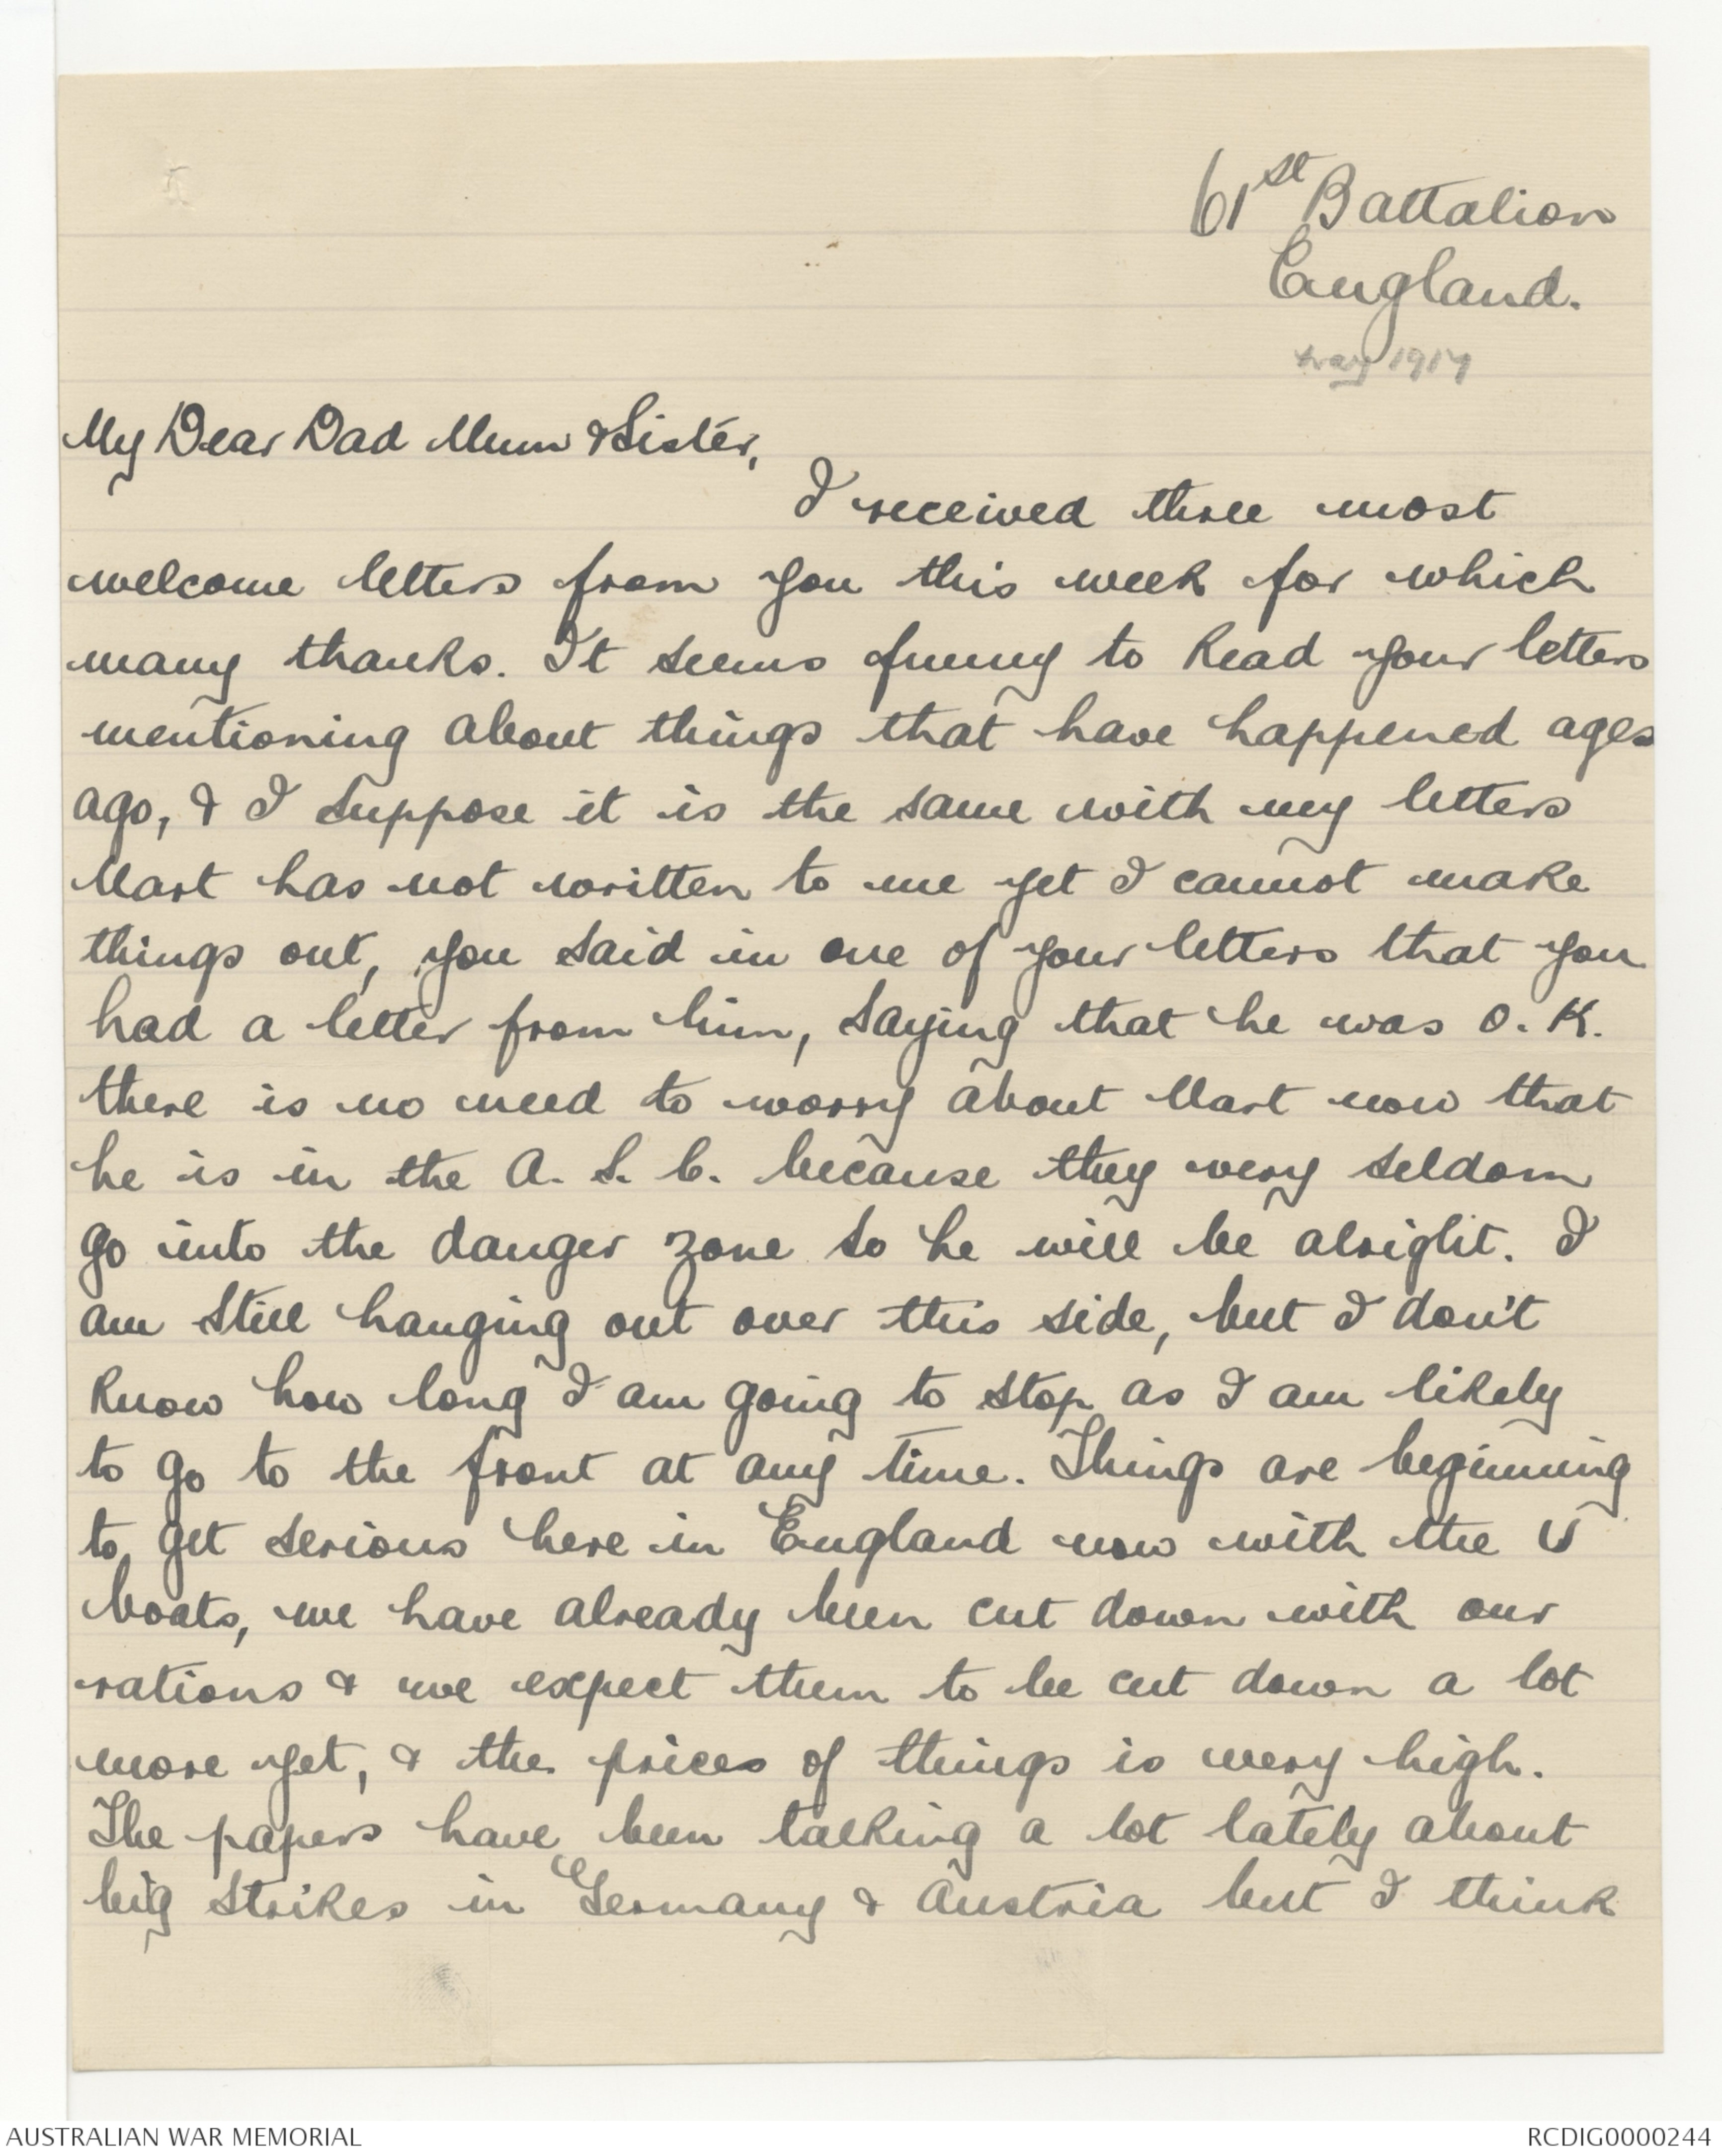 61st Battalion
England.
May 1917
My Dear Dad Mum & Sister,
I received three most
welcome letters from you this week for which
many thanks. It seems funny to Read your letters
mentioning about things that have happened ages
ago, & I suppose it is the same with my letters
Mart has not written to me yet I cannot make
things out, you said in one of your letters that you
had a letter from him, saying that he was O.K.
there is no need to worry about Mart now that
he is in the A.S.C. because they very seldom
go into the danger zone so he will be alright. I
am still hanging out over this side, but I don't
know how long I am going to stop as I am likely
to go to the front at any time. Things are beginning
to get serious here in England now with the U
boats, we have already been cut down with our
rations & we expect them to be cut down a lot
more yet, & the prices of things is very high.
The papers have been talking a lot lately about
big strikes in Germany & Austria but I think
AUSTRALIAN WAR MEMORIAL
RCDIG0000244